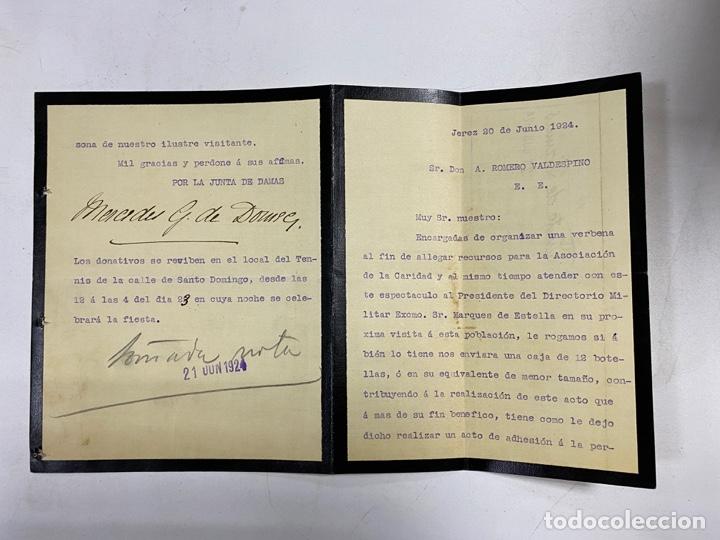 Jerez 20 de Junio 1924.
Sr. Don A. ROMERO VALDESPINO
E. E.
Muy Sr. nuestro:
Encargadas de organizar una verbena
al fin de allegar recursos para la Asociación
de la Caridad y al mismo tiempo atender con es-
te espectaculo al Presidente del Directorio Mi-
litar Exomo. Sr. Marques de Estella en su pro-
xima visita á esta población, le rogamos si á
bién lo tiene nos enviara una caja de 12 bote-
llas, ó en su equivalente de menor tamaño, con-
tribuyendo á la realización de este acto que
á mas de su fin benefico, tiene como le dejo
dicho realizar un acto de adhesión á la per-
sona de nuestro ilustre visitante.
Mil gracias y perdone á sus affmas.
POR LA JUNTA DE DAMAS
Mercedes G. de Domecq.
Los donativos se reviben en el local del Ten-
nis de la calle de Santo Domingo, desde las
12 á las 4 del dia 23 en cuya noche se cele-
brará la fiesta.
tomada nota
21 JUN 1924
todocoleccion